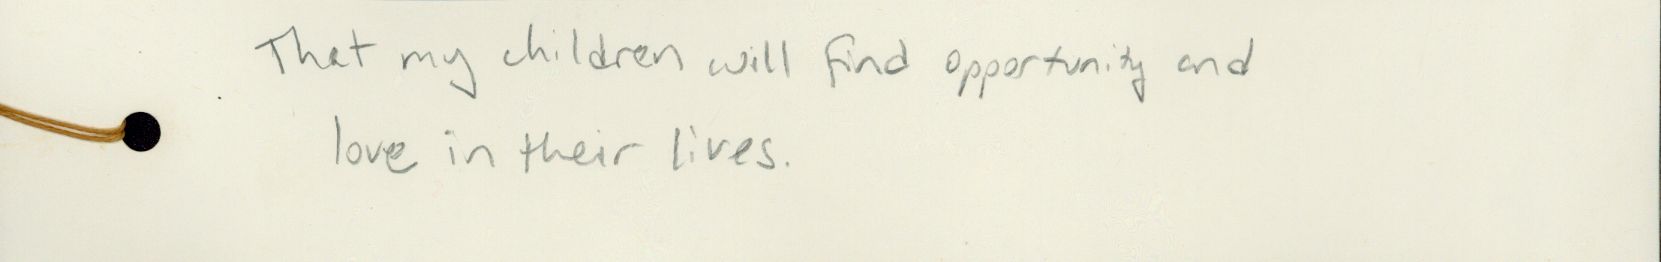 That my children will find opportunity and
love in their lives.